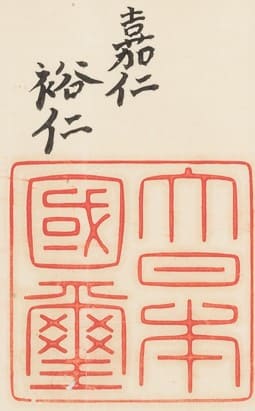 嘉仁
裕仁
大日本
國璽